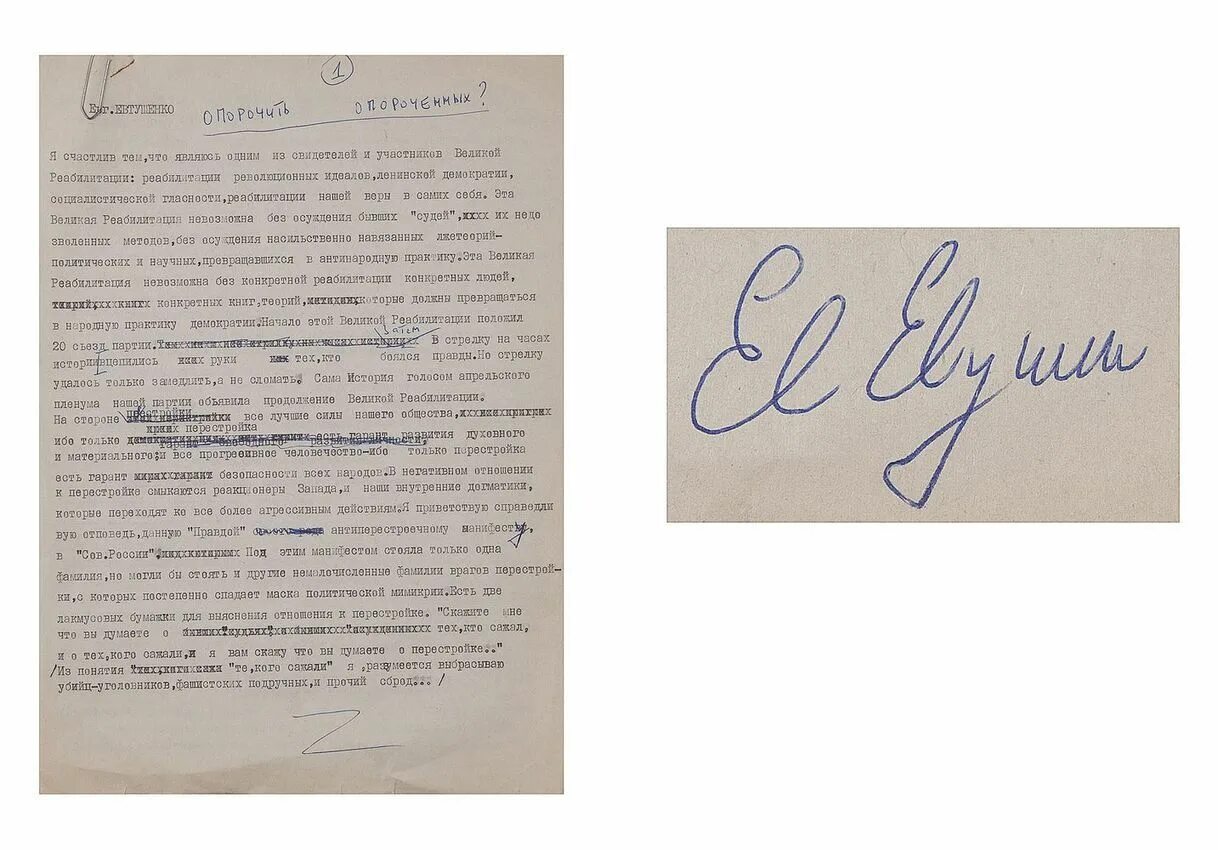 1
Евг.ЕВТУШЕНКО ОПОРОЧИТЬ ОПОРОЧЕННЫХ?
Я счастлив тем,что являюсь одним из свидетелей и участников Великой
Реабилитации: реабилитации революционных идеалов,ленинской демократии,
социалистической гласности,реабилитации нашей веры в самих себя. Эта
Великая Реабилитация невозможна без осуждения бывших "судей", их недо
зволенных методов,без осуждения насильственно навязанных лжетеорий-
политических и научных,превращавшихся в антинародную практику.Эта Великая
Реабилитация невозможна без конкретной реабилитации конкретных людей,
конкретных книг,теорий, которые должны превращаться
в народную практику демократии.Начало этой Великой Реабилитации положил
затем
20 съезд партии. В стрелку на часах
истории вцепились руки тех,кто боялся правды.Но стрелку
удалось только замедлить,а не сломать. Сама История голосом апрельского
пленума нашей партии объявила продолжение Великой Реабилитации.
перестройки
На стороне все лучшие силы нашего общества,
перестройка
ибо только есть гарант развития духовного
гарант свободного развития личности,
и материального;и все прогрессивное человечество-ибо только перестройка
есть гарант безопасности всех народов.В негативном отношении
к перестройке смыкаются реакционеры Запада,и наши внутренние догматики,
которые переходят ко все более агрессивным действиям.Я приветствую справедли
вую отповедь,данную "Правдой" антиперестроечному манифесту,
в "Сов.России". Под этим манифестом стояла только одна
фамилия,но могли бы стоять и другие немалочисленные фамилии врагов перестрой-
ки,с которых постепенно спадает маска политической мимикрии.Есть две
лакмусовых бумажки для выяснения отношения к перестройке. "Скажите мне
что вы думаете о тех,кто сажал,
и о тех,кого сажали,и я вам скажу что вы думаете о перестройке.."
/Из понятия "те,кого сажали" я ,разумеется выбрасываю
убийц-уголовников,фашистских подручных,и прочий сброд.../